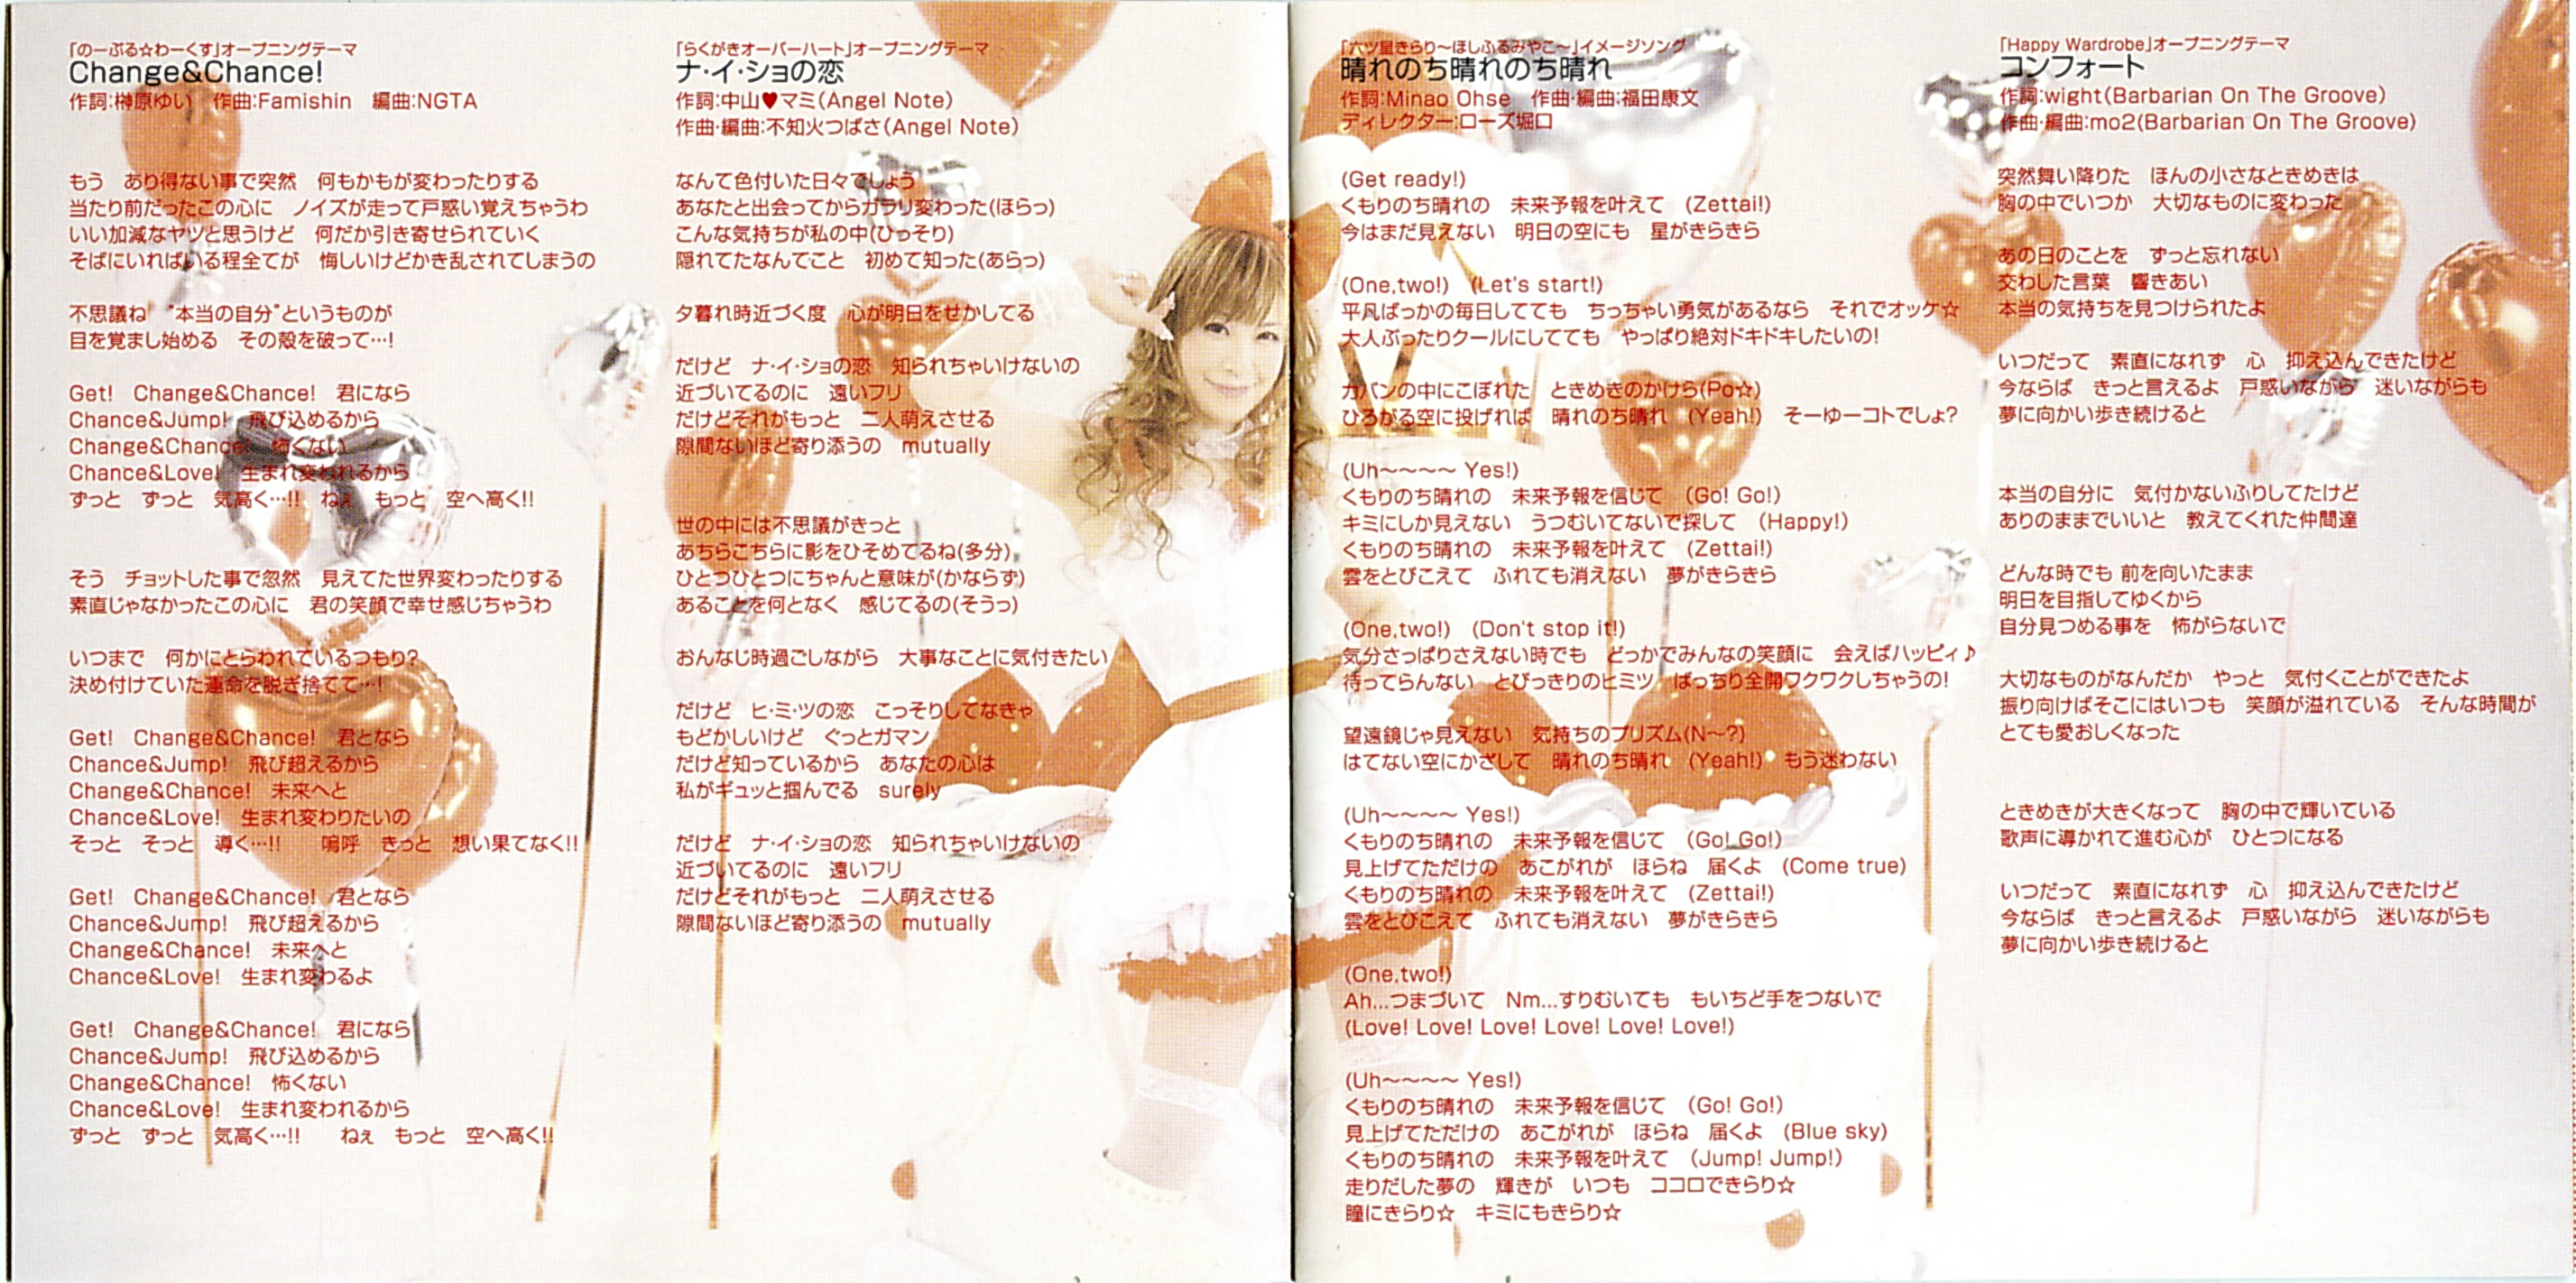 「のーぶる☆わーくす」オープニングテーマ
Change&Chance!
作詞:榊原ゆい　作曲:Famishin　編曲:NGTA
もう　あり得ない事で突然　何もかもが変わったりする
当たり前だったこの心に　ノイズが走って戸惑い覚えちゃうわ
いい加減なヤツと思うけど　何だか引き寄せられていく
そばにいればいる程全てが　悔しいけどかき乱されてしまうの
不思議ね　“本当の自分”というものが
目を覚まし始める　その殻を破って…!
Get!　Change&Chance!　君になら
Chance&Jump!　飛び込めるから
Change&Chance!　怖くない
Chance&Love!　生まれ変われるから
ずっと　ずっと　気高く…!!　ねぇ　もっと　空へ高く!!
そう　チョットした事で忽然　見えてた世界変わったりする
素直じゃなかったこの心に　君の笑顔で幸せ感じちゃうわ
いつまで　何かにとらわれているつもり?
決め付けていた運命を脱ぎ捨てて…!
Get!　Change&Chance!　君となら
Chance&Jump!　飛び超えるから
Change&Chance!　未来へと
Chance&Love!　生まれ変わりたいの
そっと　そっと　導く…!!　嗚呼　きっと　想い果てなく!!
Get!　Change&Chance!　君となら
Chance&Jump!　飛び超えるから
Change&Chance!　未来へと
Chance&Love!　生まれ変わるよ
Get!　Change&Chance!　君になら
Chance&Jump!　飛び込めるから
Change&Chance!　怖くない
Chance&Love!　生まれ変われるから
ずっと　ずっと　気高く…!!　ねぇ　もっと　空へ高く!!
「らくがきオーバーハート」オープニングテーマ
ナ・イ・ショの恋
作詞:中山♥マミ(Angel Note)
作曲・編曲:不知火つばさ(Angel Note)
なんて色付いた日々でしょう
あなたと出会ってからガラリ変わった(ほらっ)
こんな気持ちが私の中(ひっそり)
隠れてたなんてこと　初めて知った(あらっ)
夕暮れ時近づく度　心が明日をせかしてる
だけど　ナ・イ・ショの恋　知られちゃいけないの
近づいてるのに　遠いフリ
だけどそれがもっと　二人萌えさせる
隙間ないほど寄り添うの　mutually
世の中には不思議がきっと
あちらこちらに影をひそめてるね(多分)
ひとつひとつにちゃんと意味が(かならず)
あることを何となく　感じてるの(そうっ)
おんなじ時過ごしながら　大事なことに気付きたい
だけど　ヒ・ミ・ツの恋　こっそりしてなきゃ
もどかしいけど　ぐっとガマン
だけど知っているから　あなたの心は
私がギュッと掴んでる　surely
だけど　ナ・イ・ショの恋　知られちゃいけないの
近づいてるのに　遠いフリ
だけどそれがもっと　二人萌えさせる
隙間ないほど寄り添うの　mutually
「六ツ星きらり～ほしふるみやこ～」イメージソング
晴れのち晴れのち晴れ
作詞:Minao Ohse　作曲・編曲:福田康文
ディレクター:ローズ堀口
(Get ready!)
くもりのち晴れの　未来予報を叶えて　(Zettai!)
今はまだ見えない　明日の空にも　星がきらきら
(One,two!)　(Let's start!)
平凡ばっかの毎日してても　ちっちゃい勇気があるなら　それでオッケ☆
大人ぶったりクールにしてても　やっぱり絶対ドキドキしたいの!
カバンの中にこぼれた　ときめきのかけら(Po☆)
ひろがる空に投げれば　晴れのち晴れ　(Yeah!)　そーゆーコトでしょ?
(Uh～～～～ Yes!)
くもりのち晴れの　未来予報を信じて　(Go! Go!)
キミにしか見えない　うつむいてないで探して　(Happy!)
くもりのち晴れの　未来予報を叶えて　(Zettai!)
雲をとびこえて　ふれても消えない　夢がきらきら
(One,two!)　(Don't stop it!)
気分さっぱりさえない時でも　どっかでみんなの笑顔に　会えばハッピィ♪
待ってらんない　とびっきりのヒミツ　ばっちり全開ワクワクしちゃうの!
望遠鏡じゃ見えない　気持ちのプリズム(N～?)
はてない空にかざして　晴れのち晴れ　(Yeah!)　もう迷わない
(Uh～～～～ Yes!)
くもりのち晴れの　未来予報を信じて　(Go! Go!)
見上げてただけの　あこがれが　ほらね　届くよ　(Come true)
くもりのち晴れの　未来予報を叶えて　(Zettai!)
雲をとびこえて　ふれても消えない　夢がきらきら
(One,two!)
Ah...つまづいて　Nm...すりむいても　もいちど手をつないで
(Love! Love! Love! Love! Love! Love!)
(Uh～～～～ Yes!)
くもりのち晴れの　未来予報を信じて　(Go! Go!)
見上げてただけの　あこがれが　ほらね　届くよ　(Blue sky)
くもりのち晴れの　未来予報を叶えて　(Jump! Jump!)
走りだした夢の　輝きが　いつも　ココロできらり☆
瞳にきらり☆　キミにもきらり☆
「Happy Wardrobe」オープニングテーマ
コンフォート
作詞:wight(Barbarian On The Groove)
作曲・編曲:mo2(Barbarian On The Groove)
突然舞い降りた　ほんの小さなときめきは
胸の中でいつか　大切なものに変わった
あの日のことを　ずっと忘れない
交わした言葉　響きあい
本当の気持ちを見つけられたよ
いつだって　素直になれず　心　抑え込んできたけど
今ならば　きっと言えるよ　戸惑いながら　迷いながらも
夢に向かい歩き続けると
本当の自分に　気付かないふりしてたけど
ありのままでいいと　教えてくれた仲間達
どんな時でも 前を向いたまま
明日を目指してゆくから
自分見つめる事を　怖がらないで
大切なものがなんだか　やっと　気付くことができたよ
振り向けばそこにはいつも　笑顔が溢れている　そんな時間が
とても愛おしくなった
ときめきが大きくなって　胸の中で輝いている
歌声に導かれて進む心が　ひとつになる
いつだって　素直になれず　心　抑え込んできたけど
今ならば　きっと言えるよ　戸惑いながら　迷いながらも
夢に向かい歩き続けると